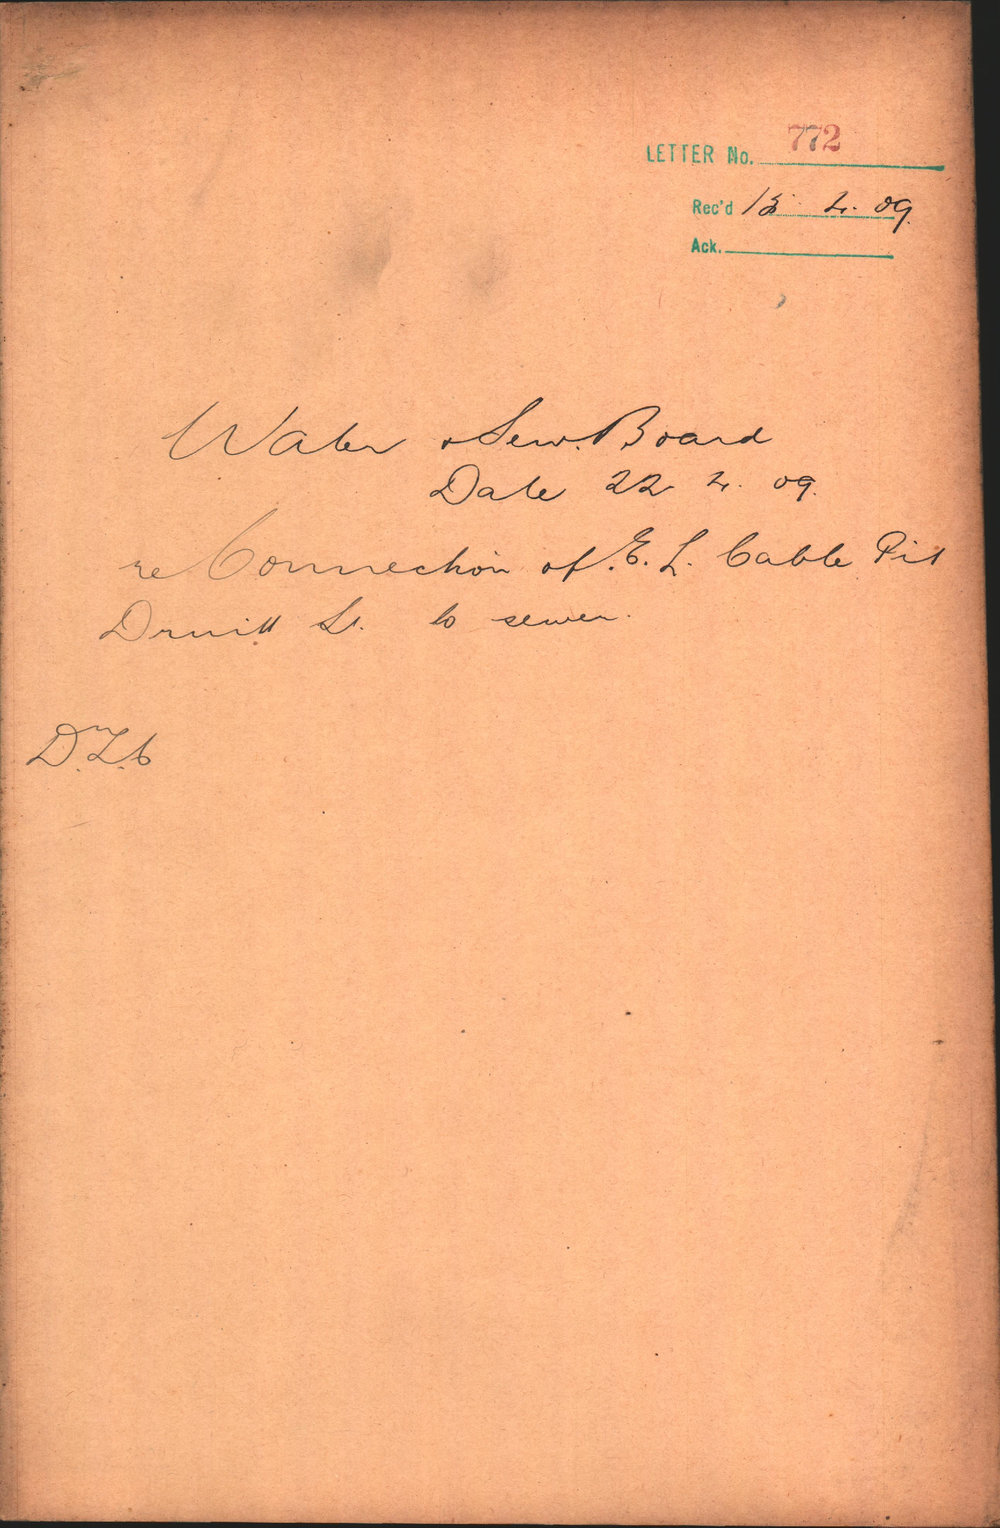 LETTER No. 772
Rec'd 13. 4. 09.
Ack.
Water & Sew. Board
Date 22. 4. 09.
re Connection of E. L. Cable Pit
Druitt St. to sewer.